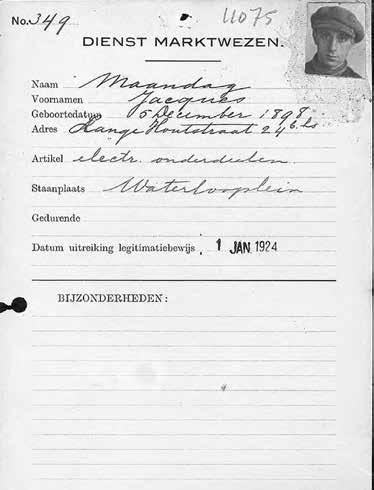 No. 349
11075
DIENST MARKTWEZEN.
Naam Maandag
Voornamen Jacques
Geboortedatum 5 December 1898
Adres Lange Houtstraat 24 b. hs
Artikel electr. onderdeelen.
Staanplaats Waterlooplein
Gedurende
Datum uitreiking legitimatiebewijs 1 JAN. 1924
BIJZONDERHEDEN: